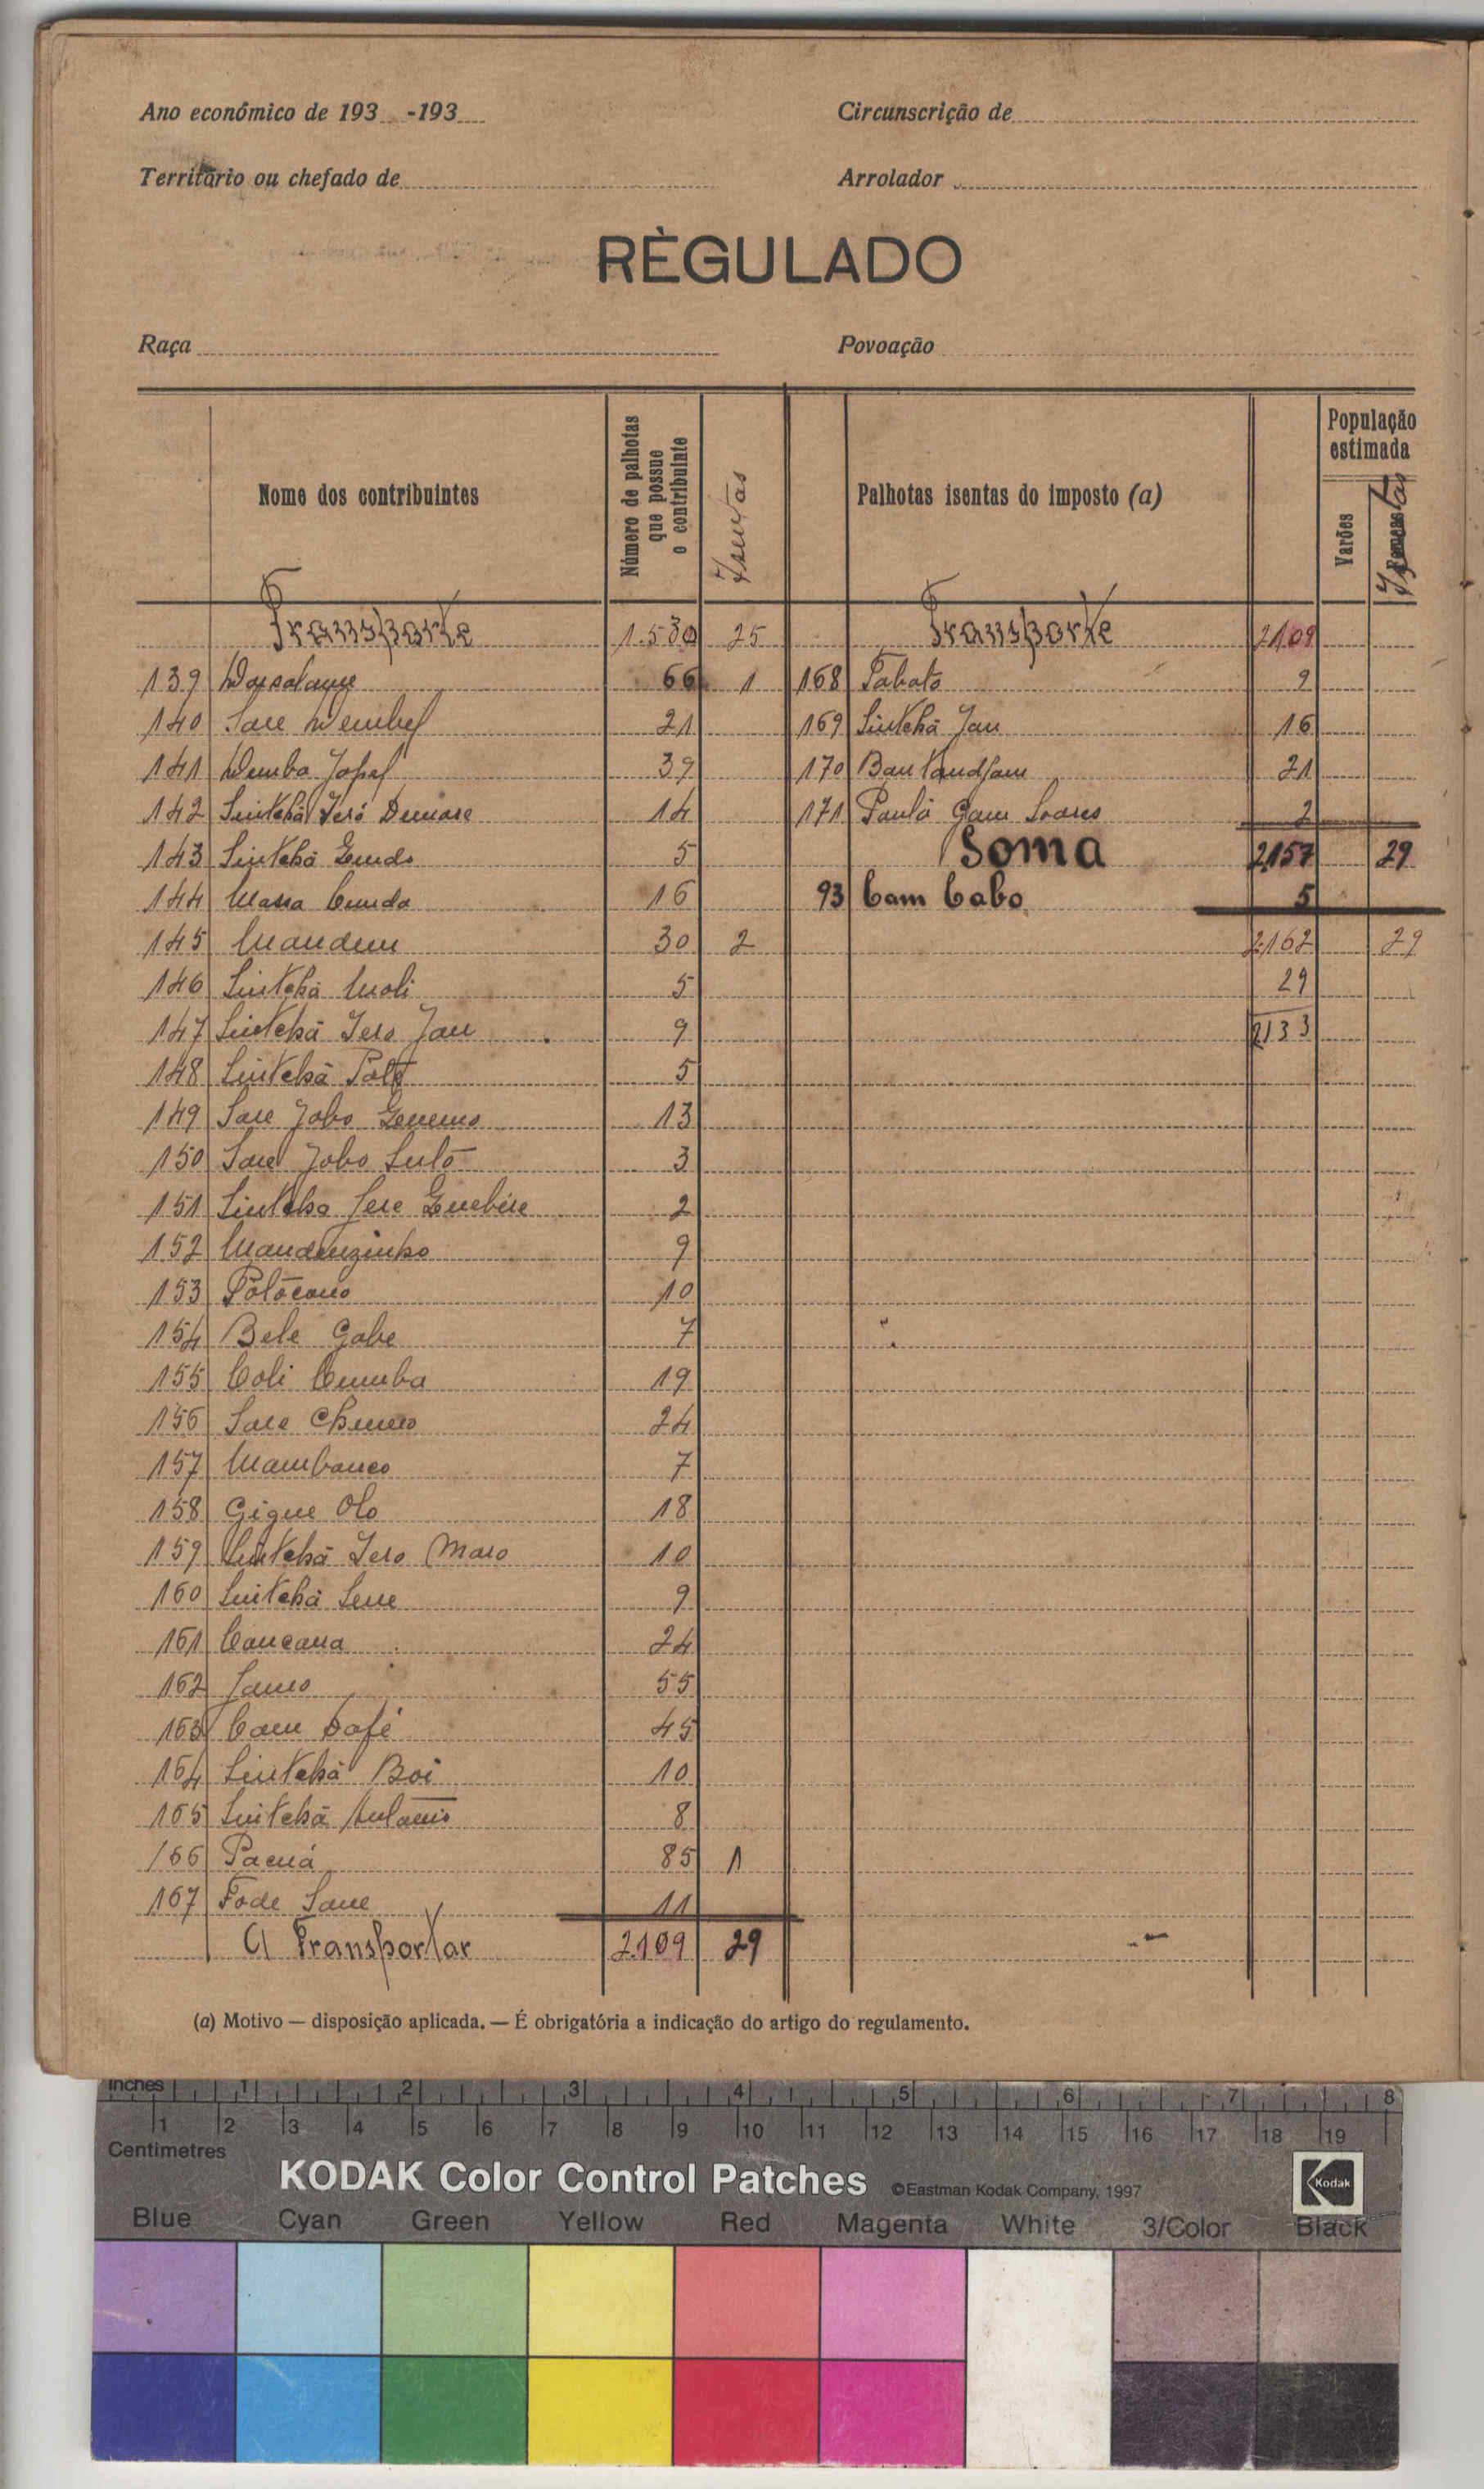 Ano económico de 193 -193
Circunscrição de
Território ou chefado de
Arrolador
RÈGULADO
Raça
Povoação
Nome dos contribuintes
Número de palhotas que possue o contribuinte
Isentas
Palhotas isentas do imposto (a)
População estimada
Varões
Isentas
Transporte 1.530 25
Transporte 2109
139 66 1
168 Tabato 9
140 Sare Wembel 21
169 Sintchã Jau 16
141 Wemba Jopel 39
170 Bantandjam 21
142 Sintchã Ieró Demase 14
171 Paulo Gam Soares 2
143 Sintchã 5
Soma 2157 29
144 Massa Cunda 16
93 Cam Cabo 5
145 Mandem 30 2
2.162 29
146 Sintchã Moli 5
29
147 Sintchã Iero Jau 9
2133
148 Sintchã Pate 5
149 Sare Jobo 13
150 Sare Jobo Sutó 3
151 Sintcha Sere 2
152 Mandenzinho 9
153 10
154 Bele Gabe 7
155 Coli Cumba 19
156 Sare 24
157 Mambonco 7
158 Gigue Olo 18
159 Sintchã Iero Maro 10
160 Sintchã Sene 9
161 24
162 55
163 Cam Dafé 45
164 Sintchã Boi 10
165 Sintchã António 8
166 Pacuá 85 1
167 Fode Sane 11
A Transportar 2.109 29
(a) Motivo — disposição aplicada. — É obrigatória a indicação do artigo do regulamento.
Inches 1 2 3 4 5 6 7 8
1 2 3 4 5 6 7 8 9 10 11 12 13 14 15 16 17 18 19
Centimetres
KODAK Color Control Patches ©Eastman Kodak Company, 1997 Kodak
Blue Cyan Green Yellow Red Magenta White 3/Color Black